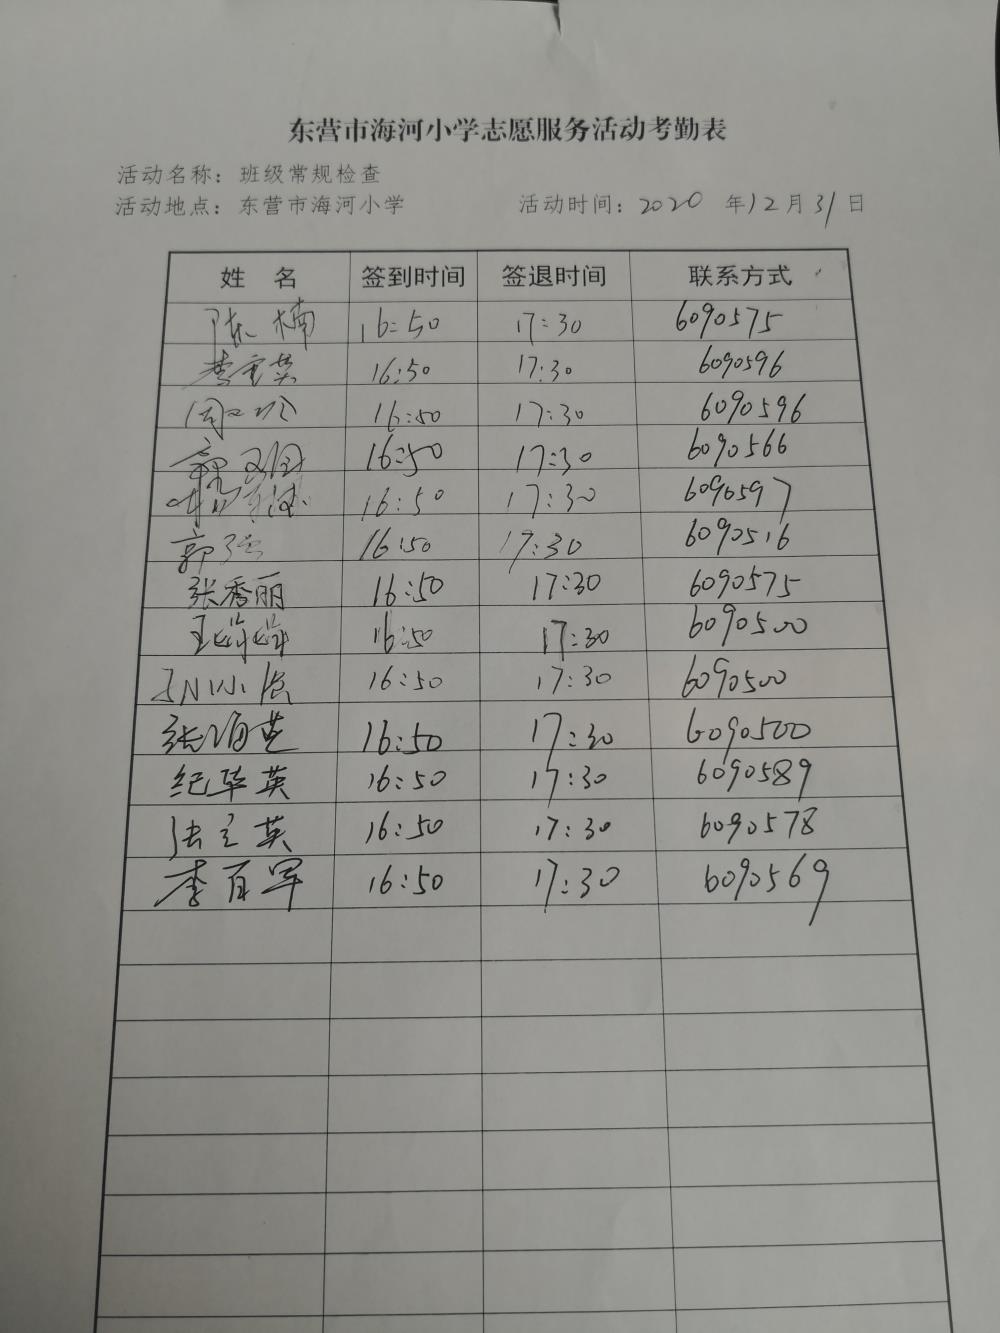 东营市海河小学志愿服务活动考勤表
活动名称：班级常规检查
活动地点：东营市海河小学 活动时间：2020 年12月31日
姓 名 签到时间 签退时间 联系方式
陈楠 16:50 17:30 6090575
16:50 17:30 6090596
16:50 17:30 6090596
16:50 17:30 6090566
16:50 17:30 6090597
郭强 16:50 17:30 6090516
张秀丽 16:50 17:30 6090575
王 16:50 17:30 6090500
16:50 17:30 6090500
张海英 16:50 17:30 6090500
纪华英 16:50 17:30 6090589
张立英 16:50 17:30 6090578
李百军 16:50 17:30 6090569